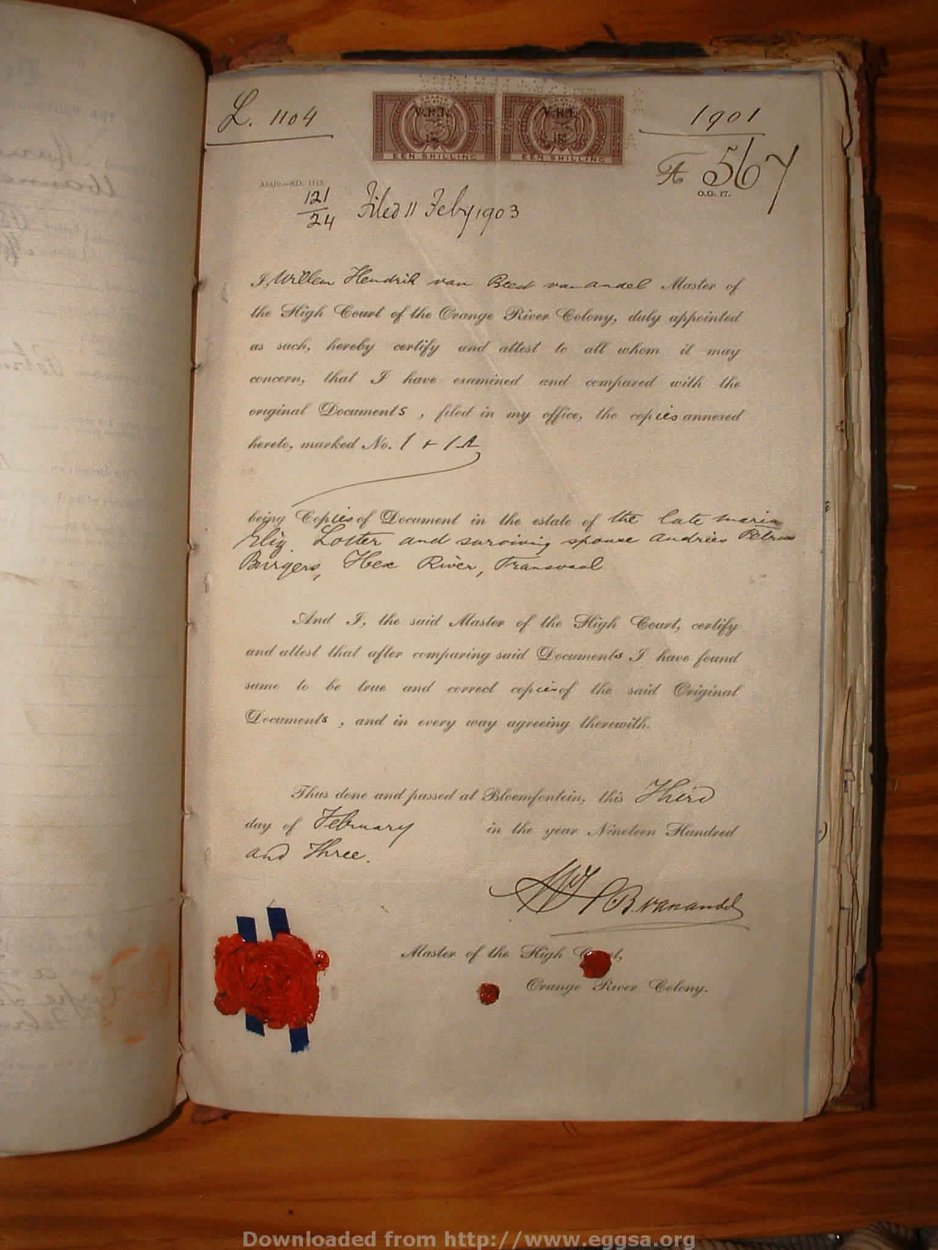 L. 1104
1901
V.R.I. V.R.I.
EEN SHILLING EEN SHILLING
A 567
O.G. 17.
121
24
Filed 11 Feby 1903
I, Willem Hendrik van Beest van Andel Master of
the High Court of the Orange River Colony, duly appointed
as such, hereby certify and attest to all whom it may
concern, that I have examined and compared with the
original Documents, filed in my office, the copies annexed
hereto, marked No. 1 + 1A
being Copies of Document in the estate of the late Maria
Eliz. Lotter and surviving spouse Andries Petrus
Burgers, Hex River, Transvaal
And I, the said Master of the High Court, certify
and attest that after comparing said Documents I have found
same to be true and correct copies of the said Original
Documents, and in every way agreeing therewith.
Thus done and passed at Bloemfontein, this Third
day of February in the year Nineteen Hundred
and Three.
B van Andel
Master of the High Court,
Orange River Colony.
Downloaded from http://www.eggsa.org